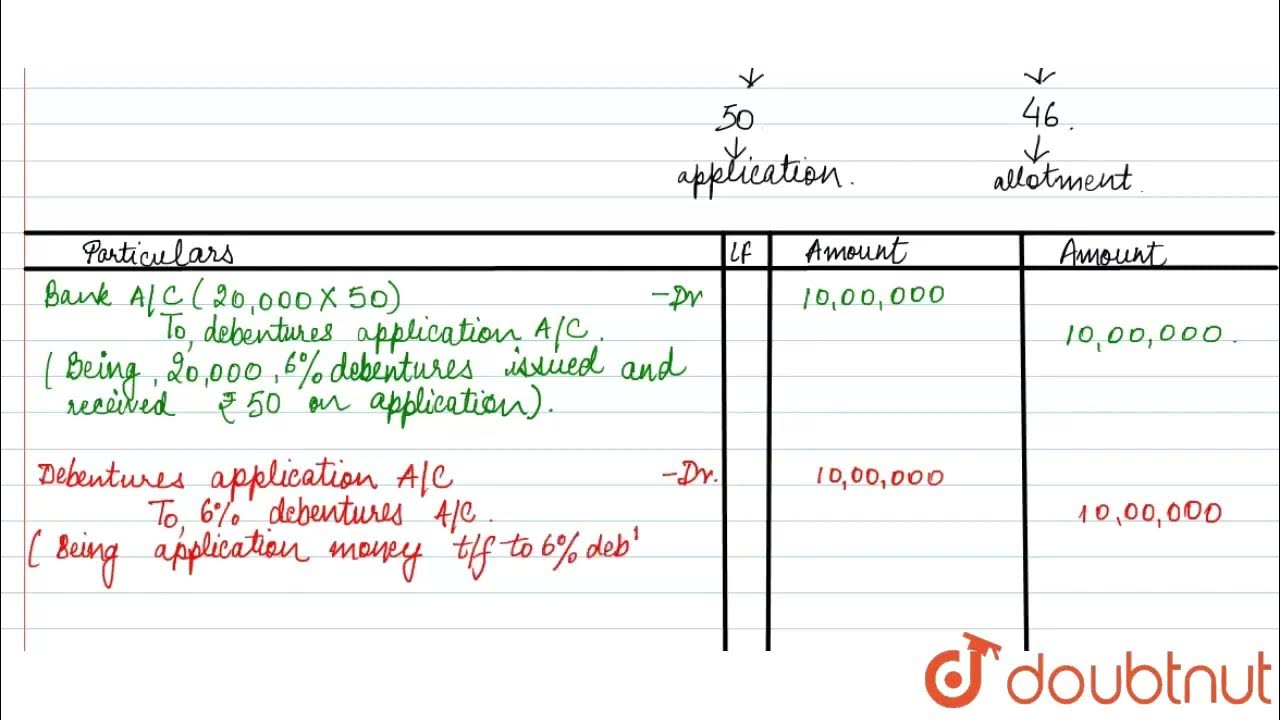 50 46.
application. allotment.
Particulars Lf Amount Amount
Bank A/C (20,000 X 50) -Dr 10,00,000
To, debentures application A/C. 10,00,000.
( Being, 20,000, 6% debentures issued and
received ₹ 50 on application).
Debentures application A/C -Dr. 10,00,000
To, 6% debentures A/C. 10,00,000
( Being application money t/f to 6% deb'
doubtnut